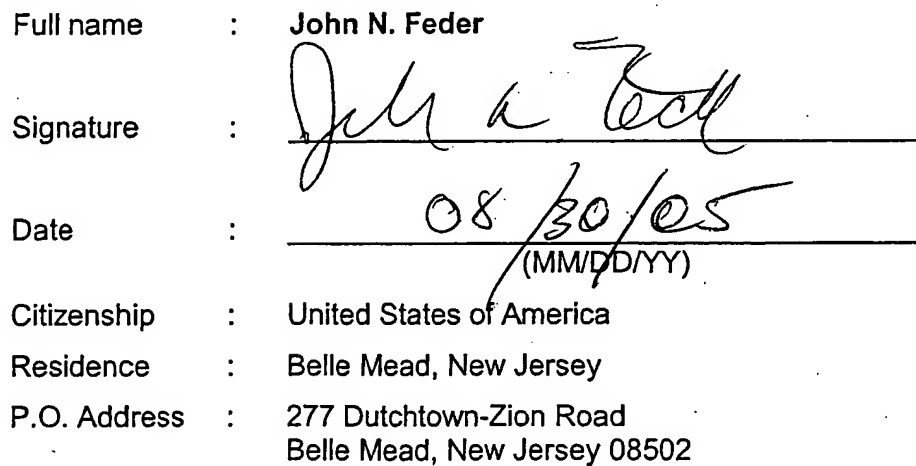 Full name : John N. Feder
Signature :
Date : 08/30/05
(MM/DD/YY)
Citizenship : United States of America
Residence : Belle Mead, New Jersey
P.O. Address : 277 Dutchtown-Zion Road
Belle Mead, New Jersey 08502